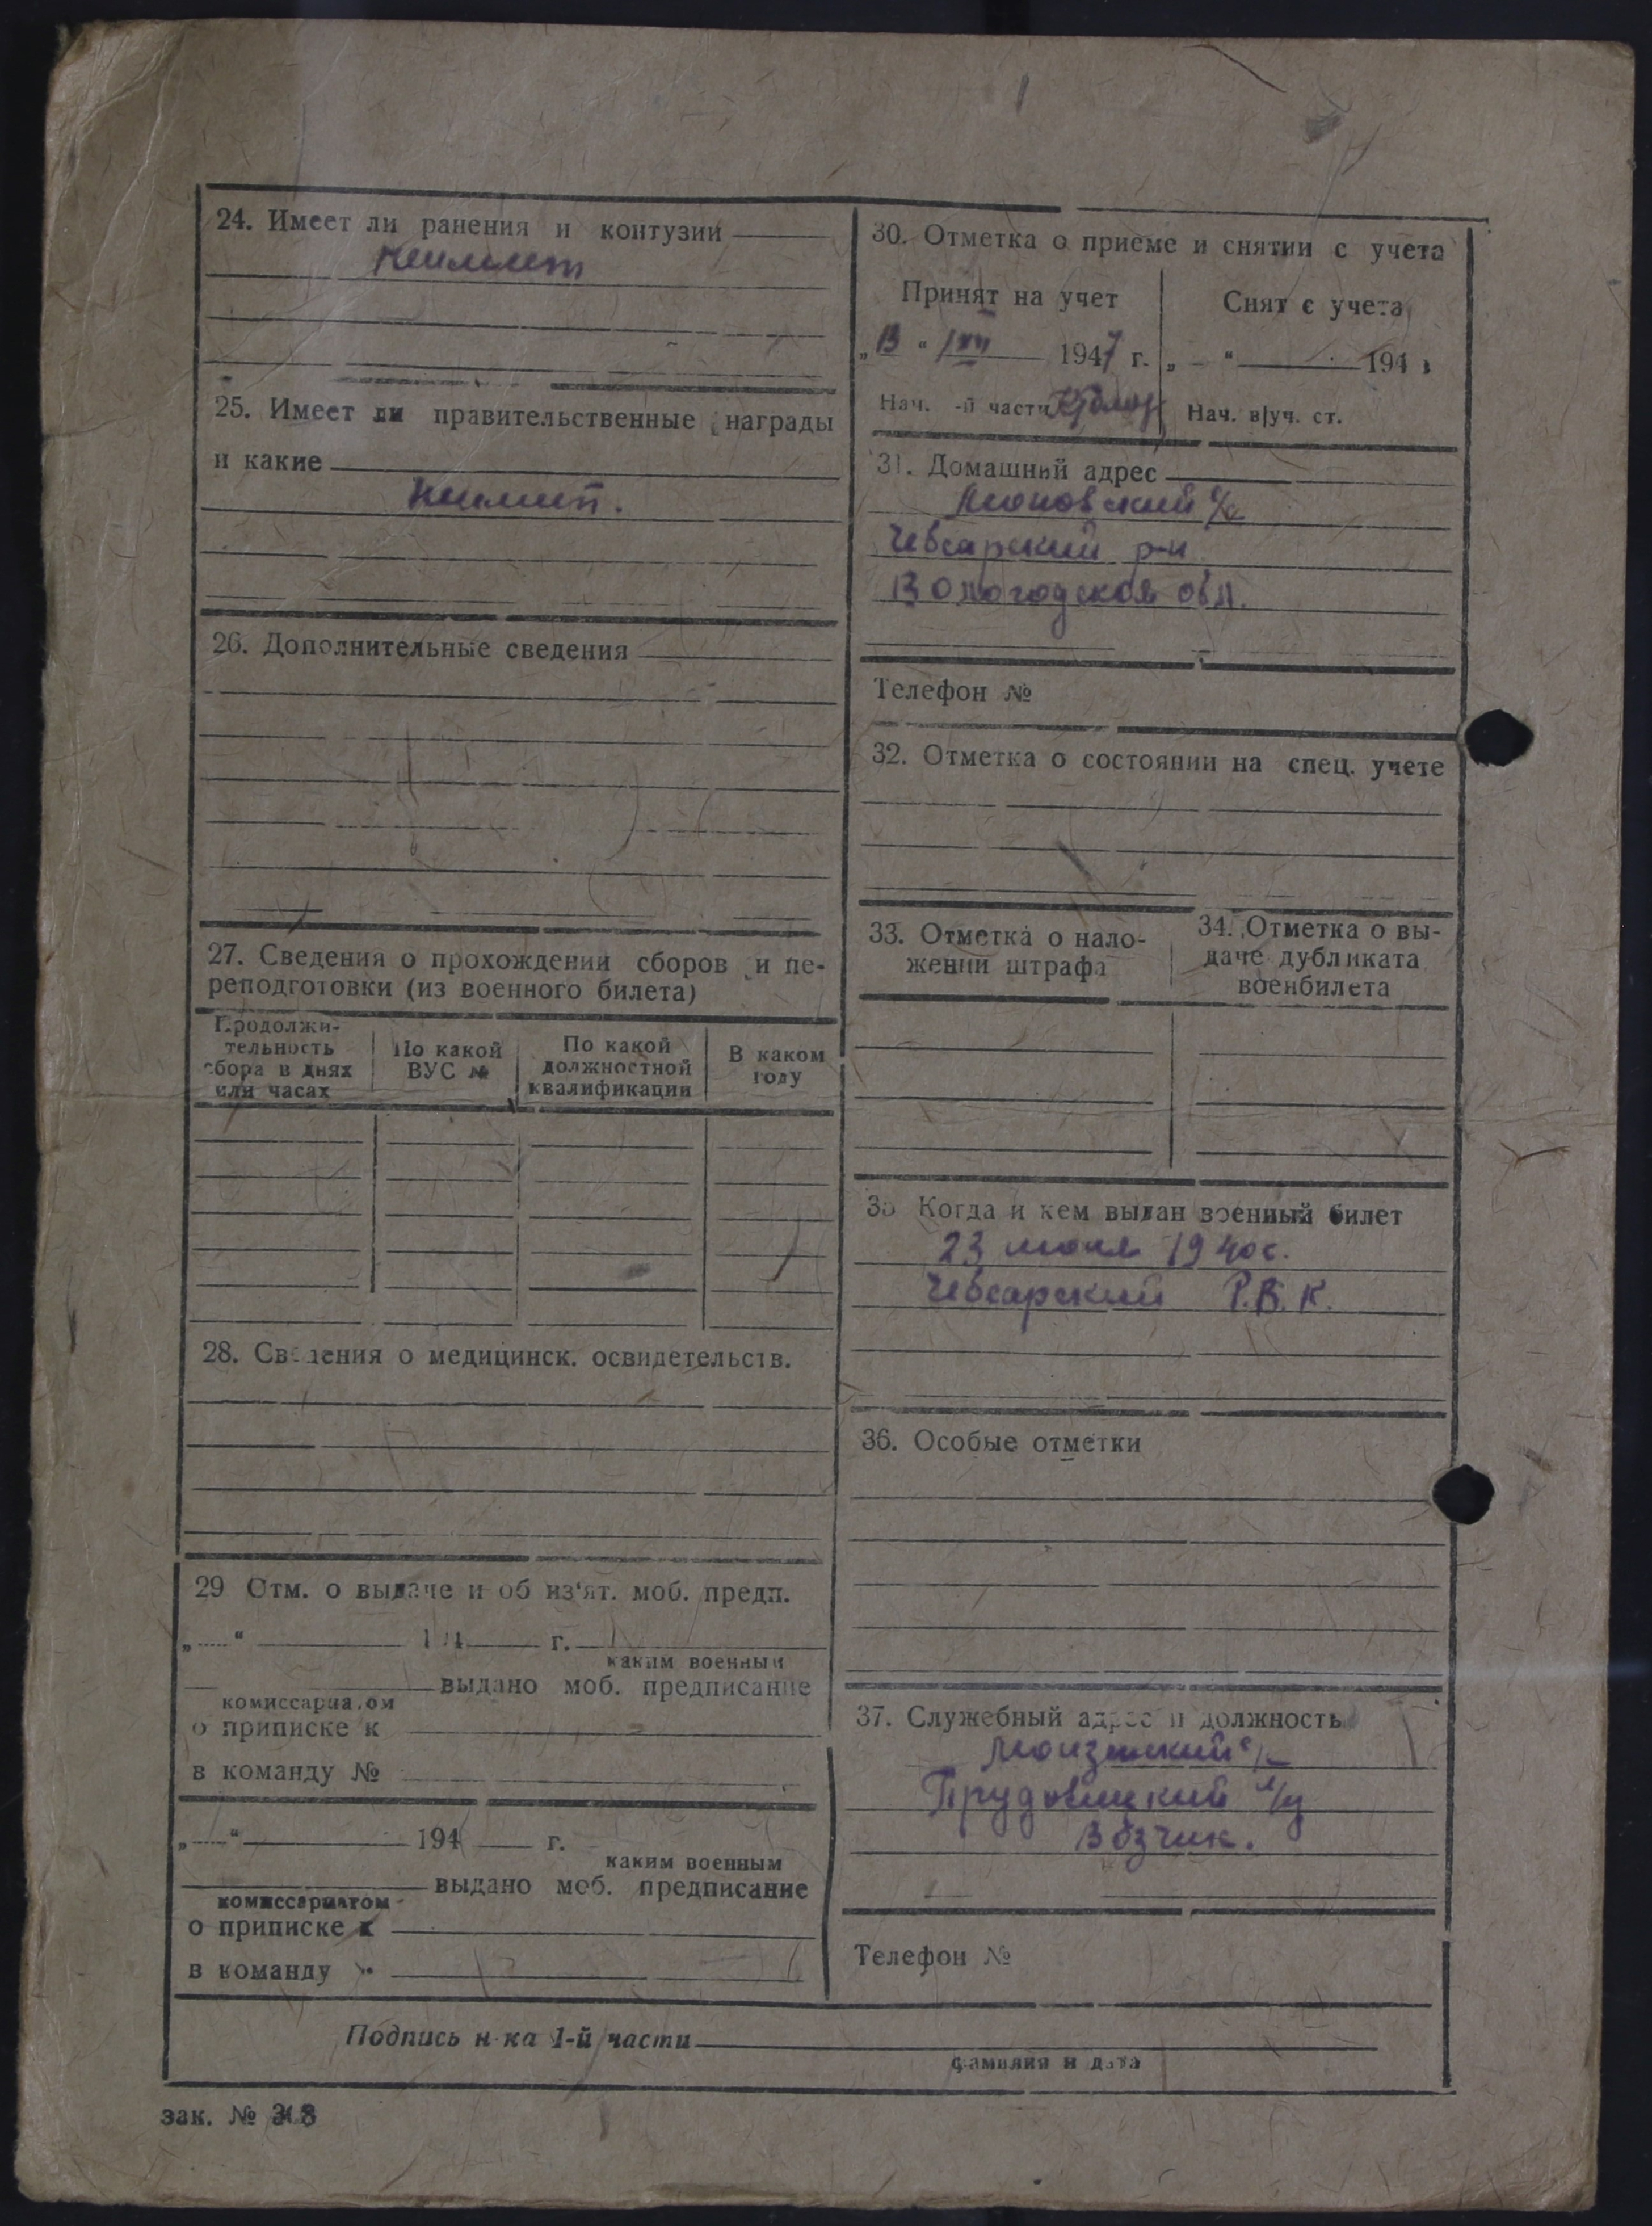 24. Имеет ли ранения и контузии
Неимеет
25. Имеет ли правительственные награды
и какие
Неимеет.
26. Дополнительные сведения
27. Сведения о прохождении сборов и пе-
реподготовки (из военного билета)
Продолжи-
тельность
сбора в днях
или часах
По какой
ВУС №
По какой
должностной
квалификации
В каком
году
28. Сведения о медицинск. освидетельств.
29 Отм. о выдаче и об из'ят. моб. предп.
„ “ 194 г.
каким военным
выдано моб. предписание
комиссариатом
о приписке к
в команду №
„ “ 194 г.
каким военным
выдано моб. предписание
комиссариатом
о приписке к
в команду
30. Отметка о приеме и снятии с учета
Принят на учет
„13“ 1947 г.
Нач. -й части
Снят с учета
„ “ 194
Нач. в|уч. ст.
31. Домашний адрес
с/с
Чебсарский р-н
Вологодская обл.
Телефон №
32. Отметка о состоянии на спец. учете
33. Отметка о нало-
жении штрафа
34. Отметка о вы-
даче дубликата
военбилета
35 Когда и кем выдан военный билет
23 июня 1940г.
Чебсарский Р.В.К.
36. Особые отметки
37. Служебный адрес и должность
Возчик.
Телефон №
Подпись н-ка 1-й части
фамилия и дата
зак. №